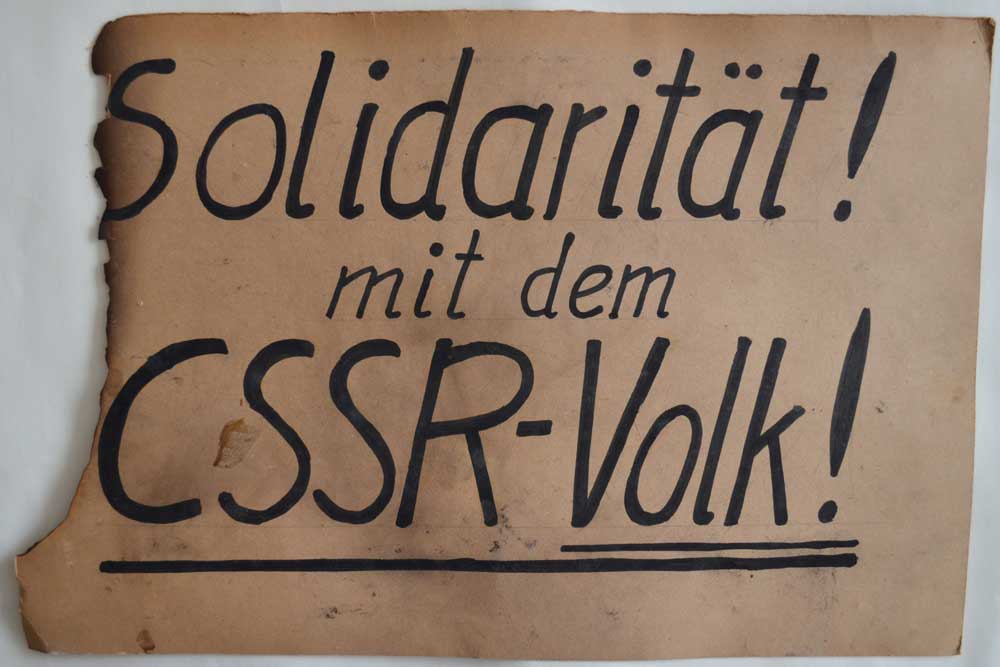 Solidarität!
mit dem
CSSR-Volk!